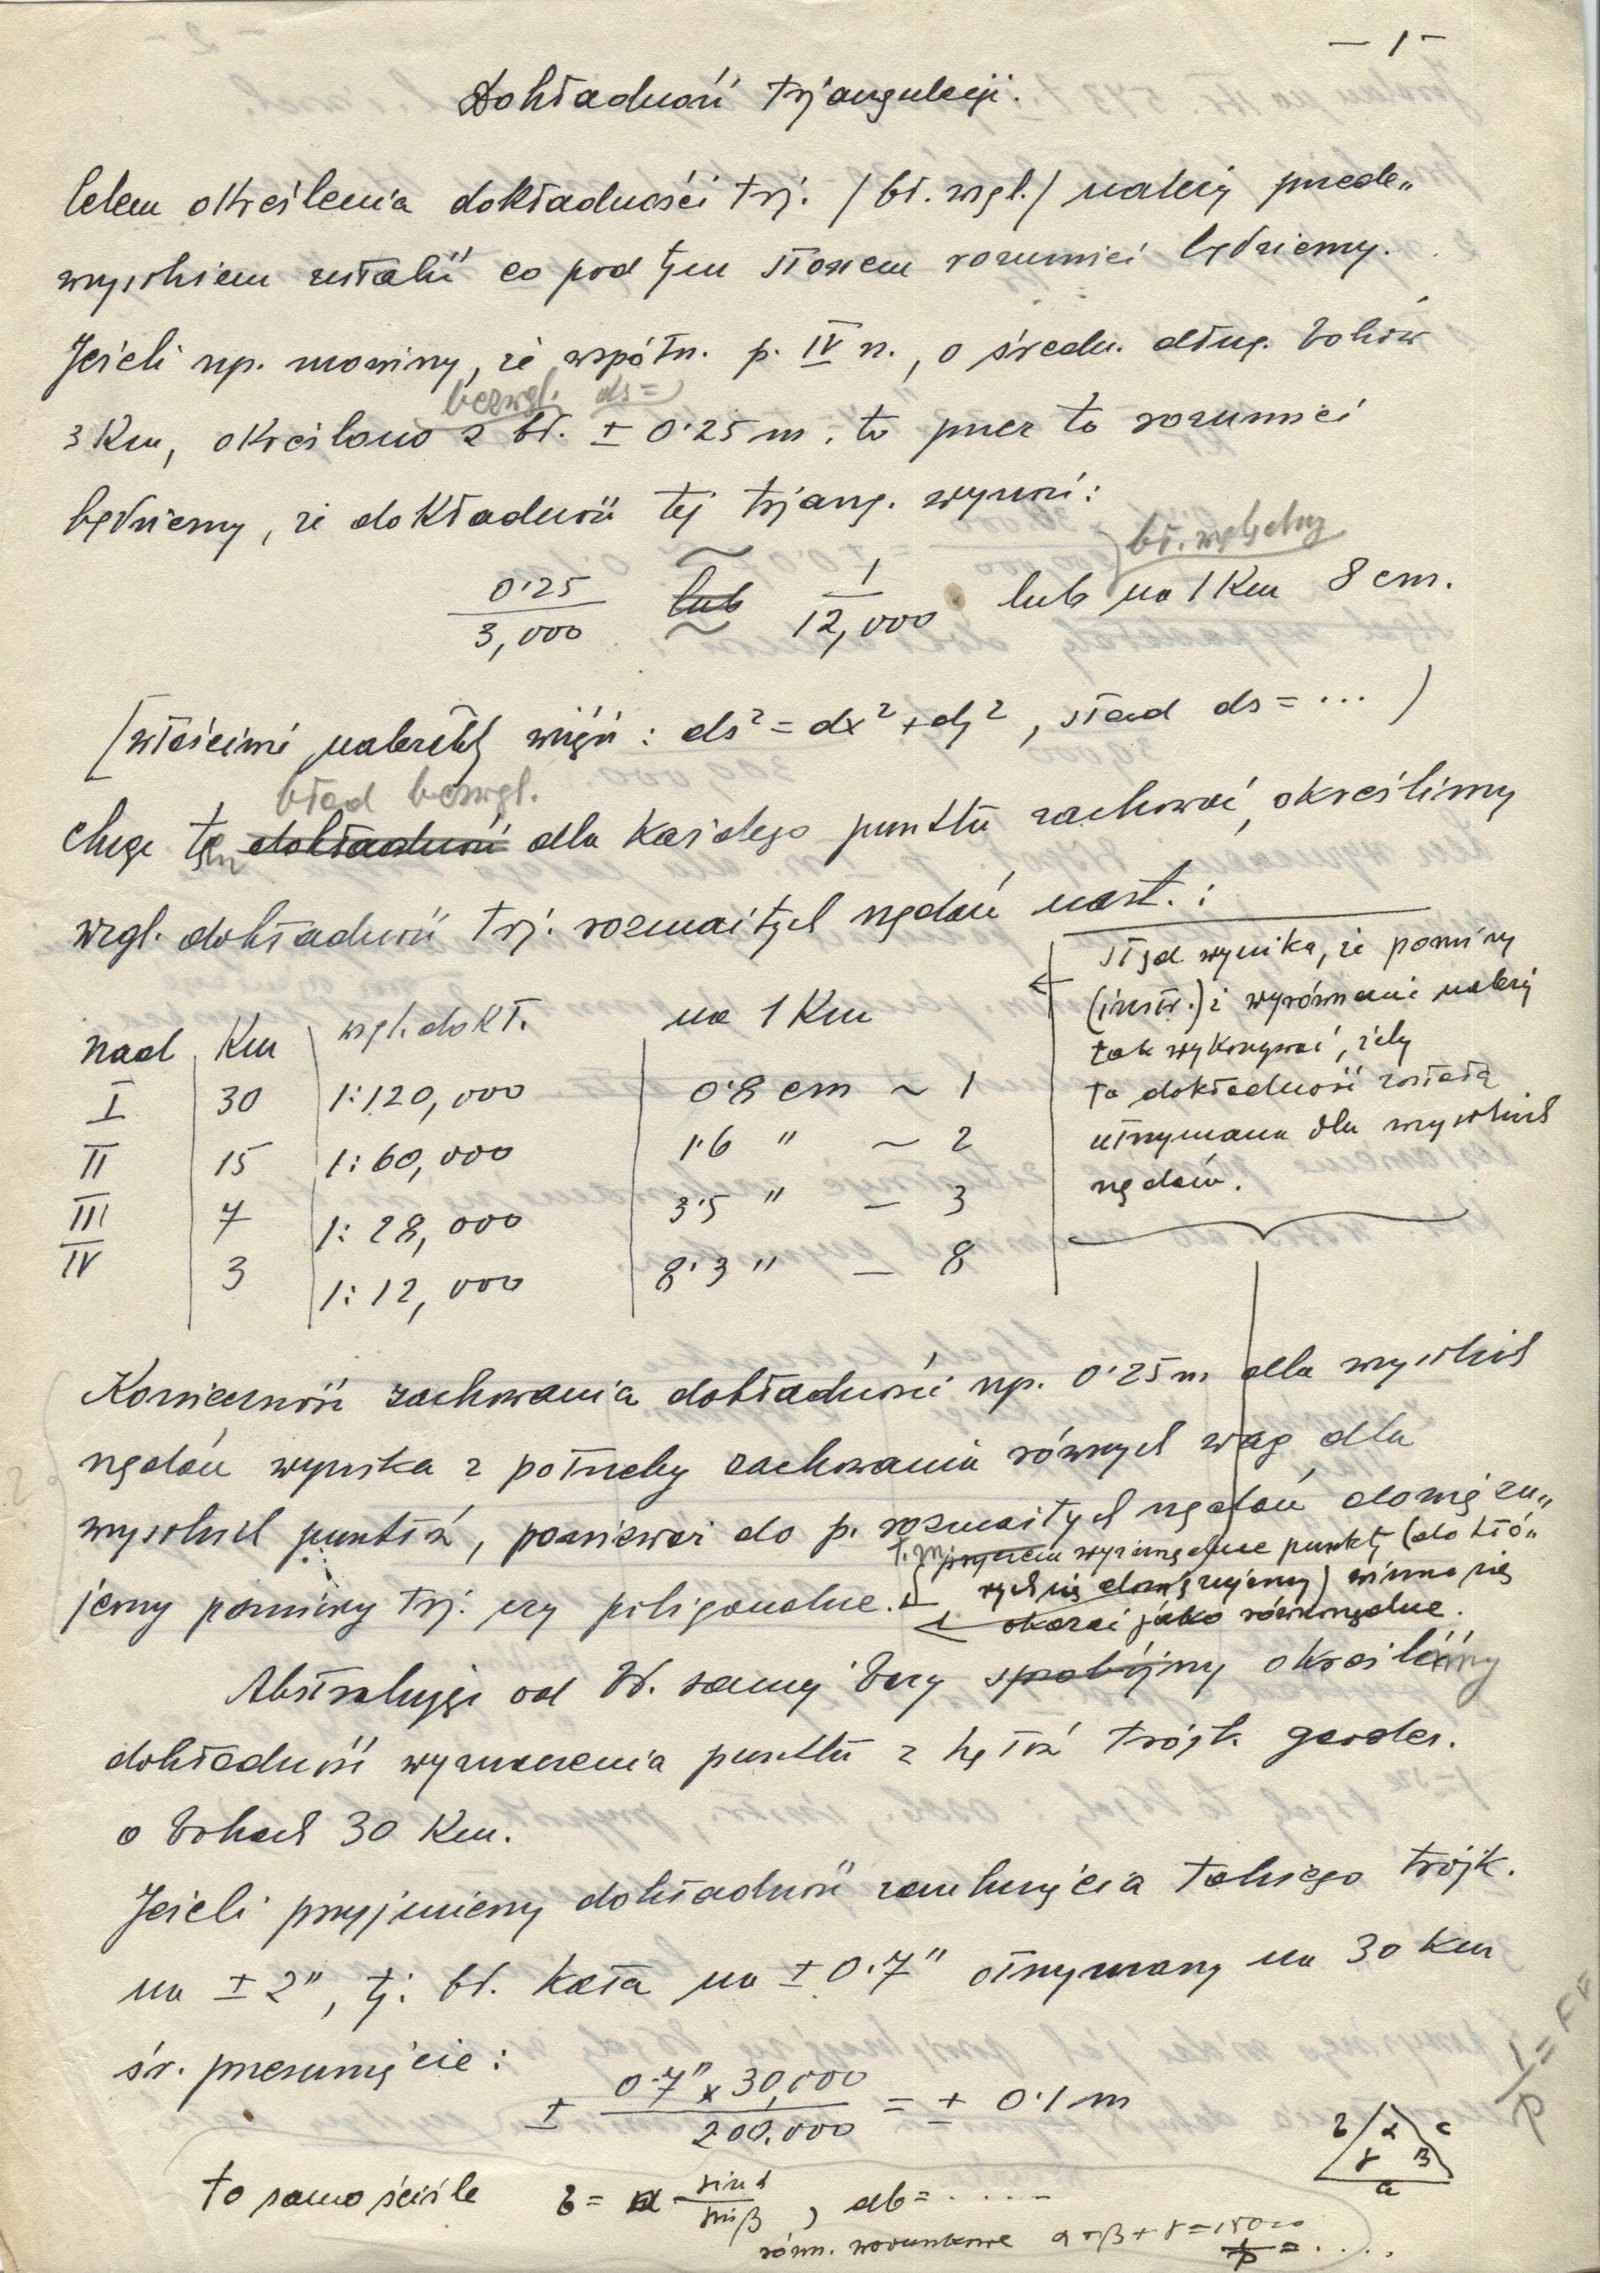 — 1 —
Dokładność trjangulacji.
Celem określenia dokładności trj. /bł. wzgl./ należy przede„
wszystkiem ustalić co pod tym słowem rozumieć będziemy.
Jeżeli np. mówimy, że współrz. p. IV rz., o średn. dług. boków
bezwzgl. ds=
3 Km, określono z bł. ± 0·25 m. to przez to rozumieć
będziemy, że dokładność tej trjang. wynosi:
bł. względny
0·25/3,000 lub 1/12,000 lub na 1 Km 8 cm.
[właściwie należałoby wziąć: ds² = dx² + dy², stąd ds = ... )
błąd bezwzgl.
Chcąc tę dokładność dla każdego punktu zachować, określimy
wzgl. dokładność trj. rozmaitych rzędów nast.:
rząd Km wzgl. dokł. na 1 Km
I 30 1:120,000 0·8 cm ~ 1
II 15 1:60,000 1·6 " ~ 2
III 7 1:28,000 3·5 " — 3
IV 3 1:12,000 8·3 " — 8
Stąd wynika, że pomiary
(instr.) i wyrównanie należy
tak wykonywać, żeby
ta dokładność została
utrzymana dla wszystkich
rzędów.
Konieczność zachowania dokładności np. 0·25 m dla wszystkich
rzędów wynika z potrzeby zachowania równych wag dla
wszystkich punktów, ponieważ do p. rozmaitych rzędów dowiązu„
jemy pomiary trj. czy poligonalne.
wyższorzędne punkty (do któ„
rych się dowiązujemy) winne się
okazać jako równorzędne.
Abstrahując od bł. samej bazy spróbujmy określimy
dokładność wyznaczenia punktu z kątów trójk. geodez.
o bokach 30 Km.
Jeżeli przyjmiemy dokładność zamknięcia takiego trójk.
na ± 2", tj. bł. kąta na ± 0·7" otrzymamy na 30 Km
śr. przesunięcie:
± 0·7" x 30,000/200,000 = ± 0·1 m
b α c
γ β
a
1/p =
to samo ściśle b = a sin α/sin β, db = .....
równ. warunkowe α + β + γ = 180°
1/p = ....